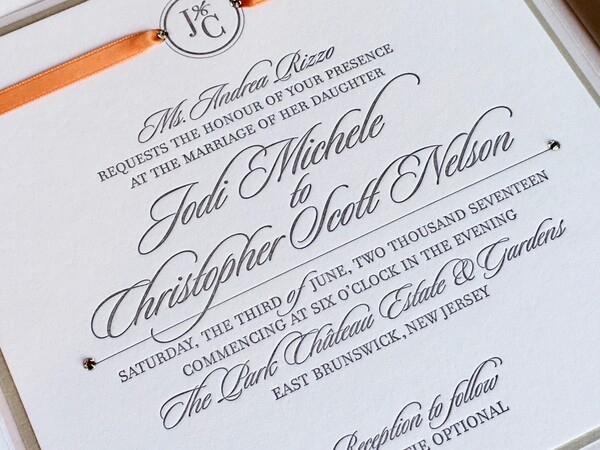 J & C
Ms. Andrea Rizzo
REQUESTS THE HONOUR OF YOUR PRESENCE
AT THE MARRIAGE OF HER DAUGHTER
Jodi Michele
to
Christopher Scott Nelson
SATURDAY, THE THIRD of JUNE, TWO THOUSAND SEVENTEEN
COMMENCING AT SIX O'CLOCK IN THE EVENING
The Park Château Estate & Gardens
EAST BRUNSWICK, NEW JERSEY
Reception to follow
OPTIONAL